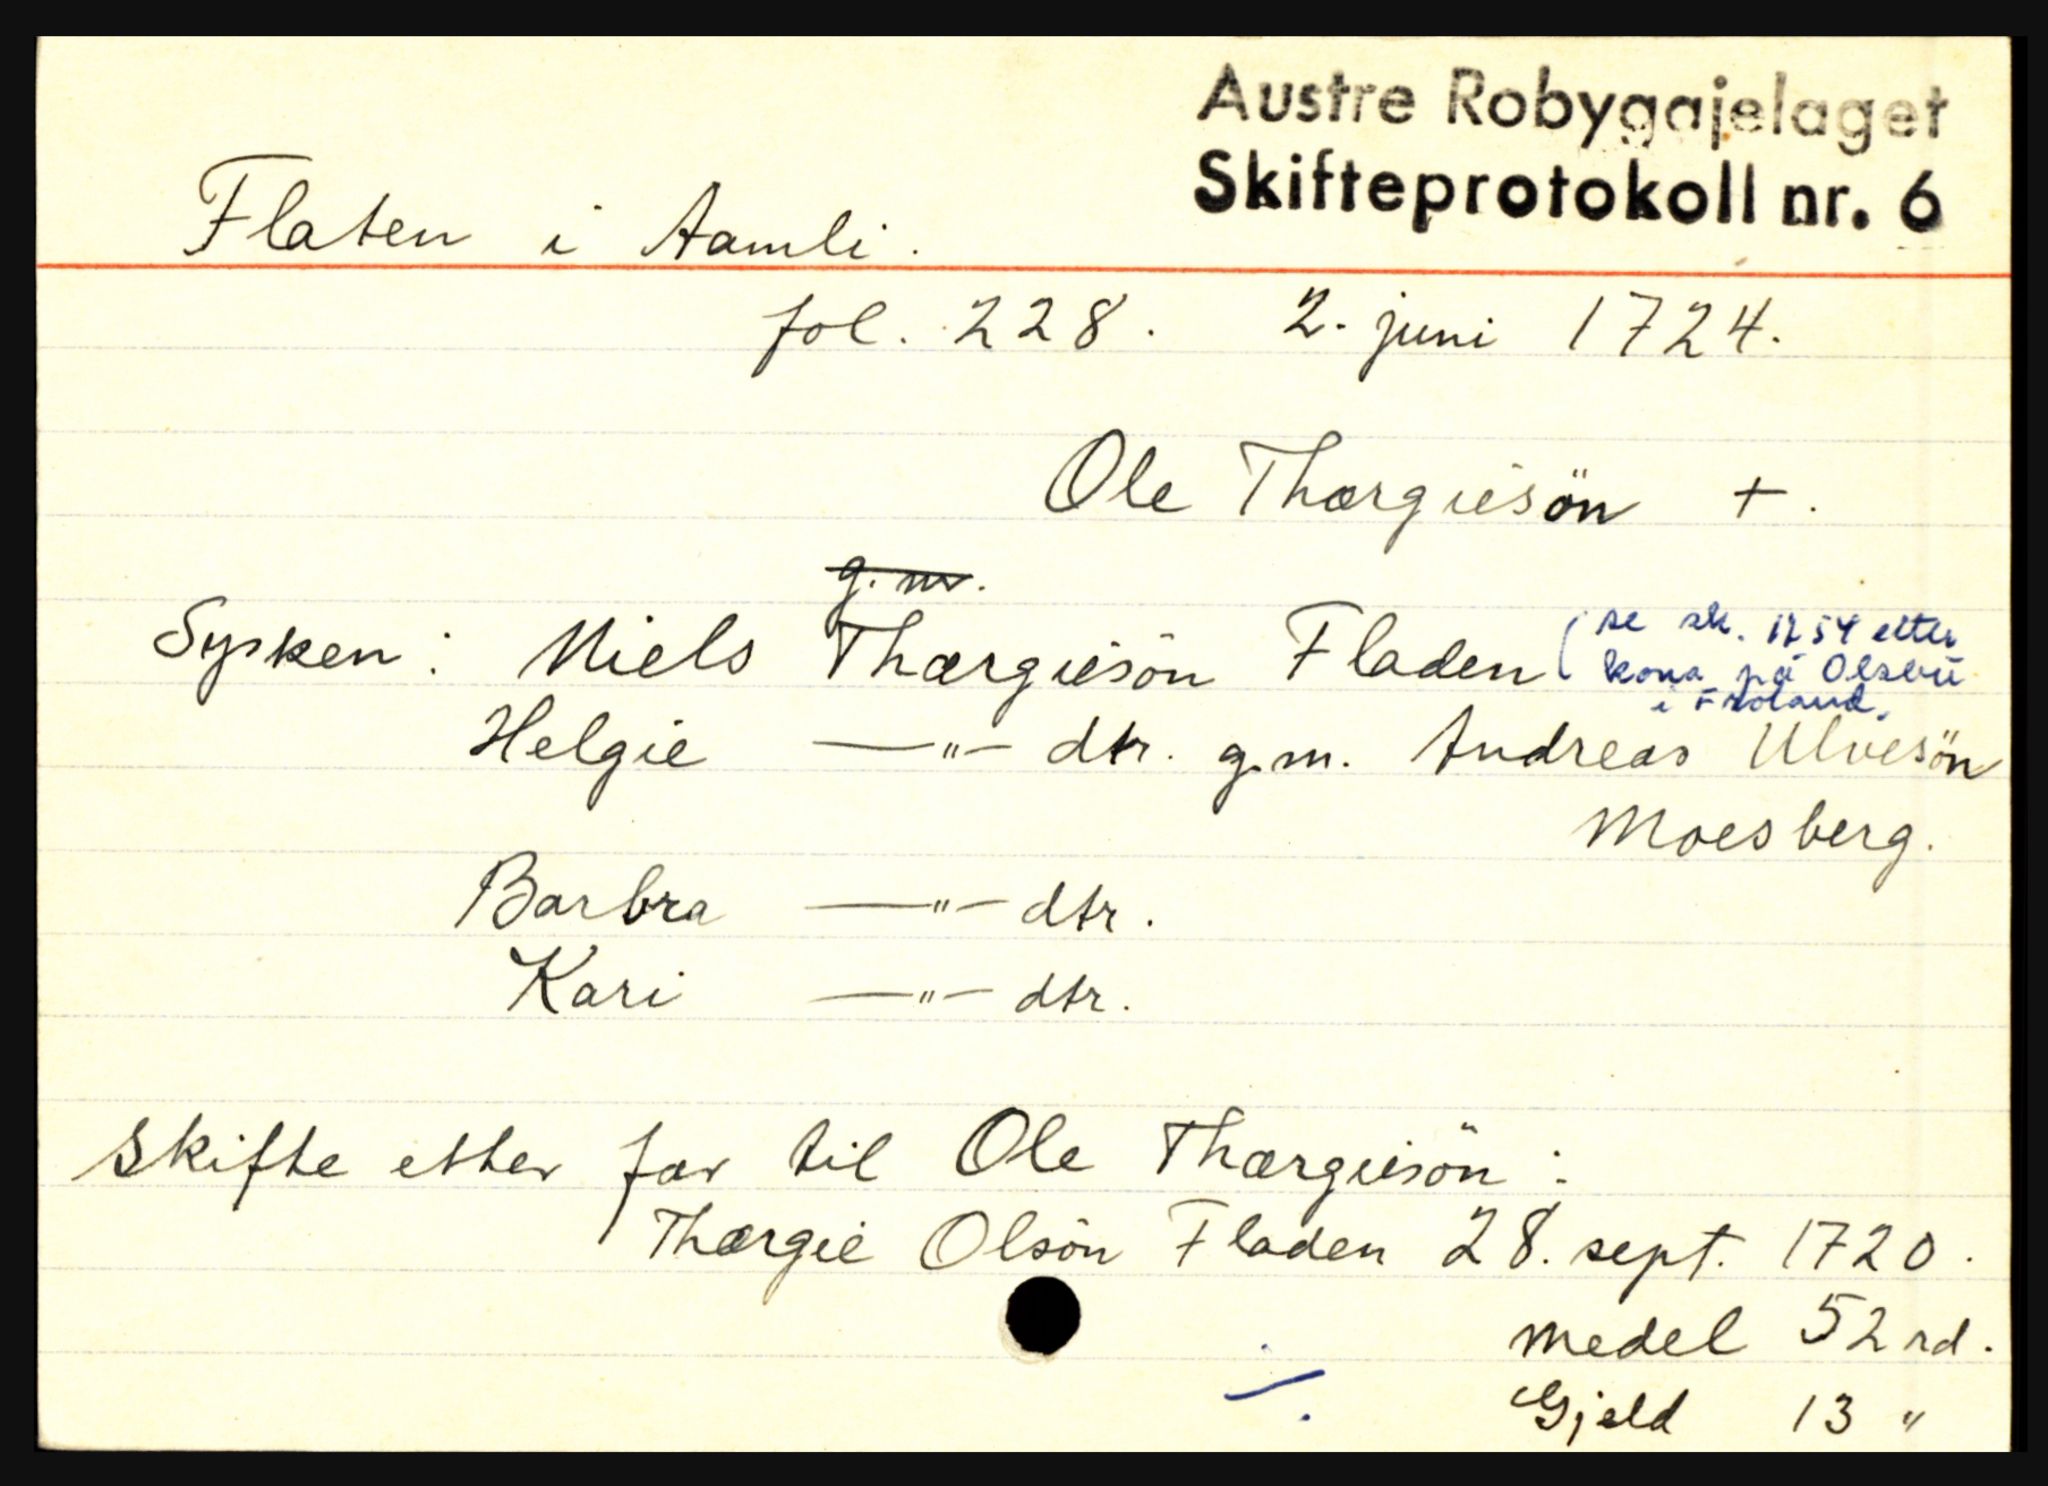 Austre Robygajelaget
Skifteprotokoll nr. 6
Flaten i Aamli.
fol. 228. 2. juni 1724.
Ole Thorgiesön +.
g.m.
Sysken: Niels Thorgiesön Fladen (se sk. 1754 etter
kona på Olsbu
i Froland.
Helgie —"— dtr. g.m. Andreas Ulvesön
Moesberg.
Barbra —"— dtr.
Kari —"— dtr.
Skifte etter far til Ole Thorgiesön:
Thorgie Olsön Fladen 28. sept. 1720.
Medel 52 rd.
Gjeld 13 "